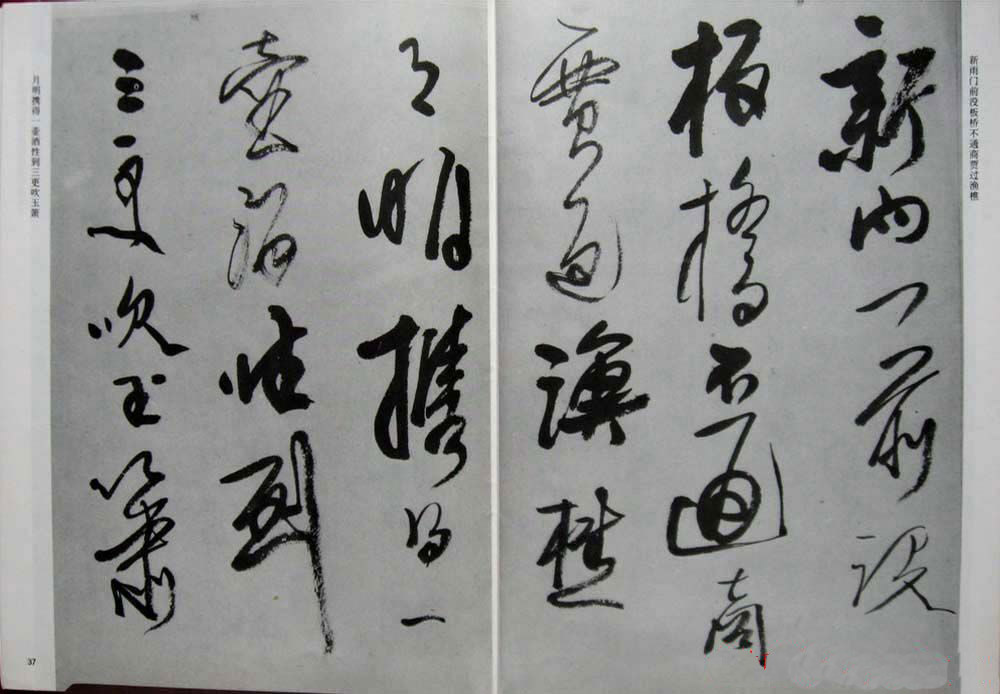 新雨门前没板桥不通商贾过渔樵
新雨门前没
板橋不通商
賈過漁樵
月明攜得一
壺酒性到
三更吹玉簫
月明携得一壶酒性到三更吹玉箫
37